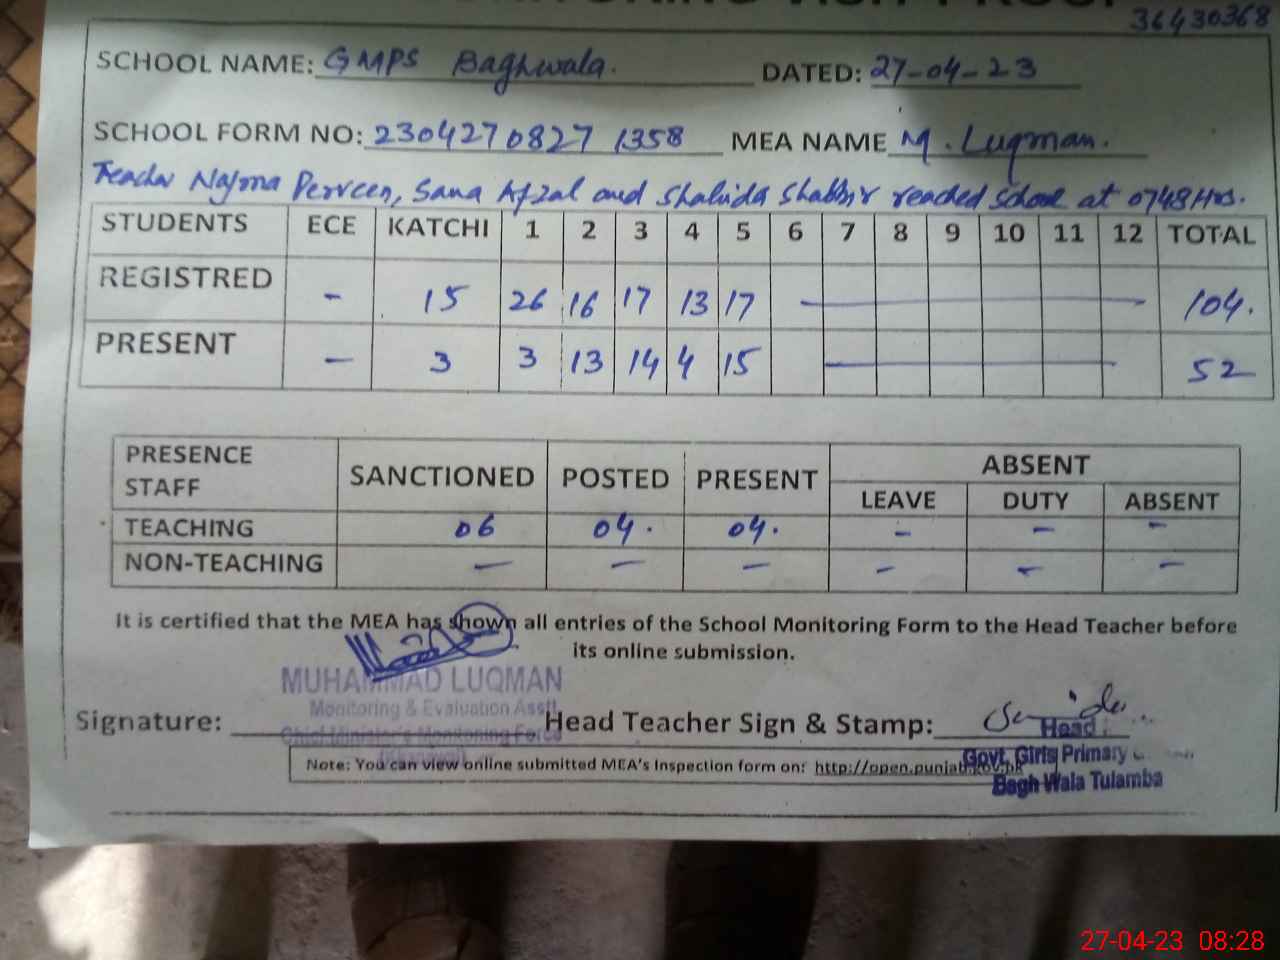 36430368
SCHOOL NAME: GMPS Baghwala. DATED: 27-04-23
SCHOOL FORM NO: 2304270827 1358 MEA NAME M. Luqman.
Teacher Najma Perveen, Sana Afzal and Shahida Shabbir reached school at 0748 Hrs.
STUDENTS ECE KATCHI 1 2 3 4 5 6 7 8 9 10 11 12 TOTAL
REGISTRED - 15 26 16 17 13 17 104.
PRESENT - 3 3 13 14 4 15 52
PRESENCE STAFF SANCTIONED POSTED PRESENT ABSENT
LEAVE DUTY ABSENT
TEACHING 06 04. 04. - - -
NON-TEACHING - - - - - -
It is certified that the MEA has shown all entries of the School Monitoring Form to the Head Teacher before
its online submission.
MUHAMMAD LUQMAN
Monitoring & Evaluation Asstt
Chief Minister's Monitoring Force
Signature: Head Teacher Sign & Stamp:
Head
Govt. Girls Primary
Bagh Wala Tulamba
Note: You can view online submitted MEA's Inspection form on: http://open.punjab.gov.pk
27-04-23 08:28